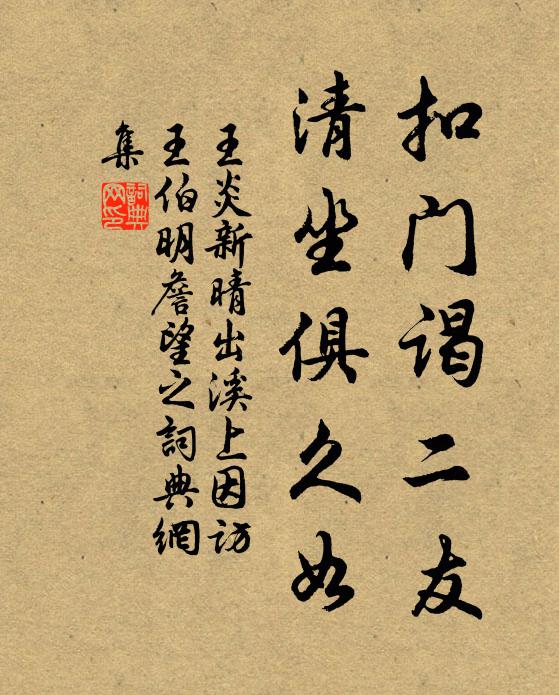 扣门谒二友
清坐俱久如
王炎新晴出溪上因访
王伯明詹望之詞典網
集
詞典
网印